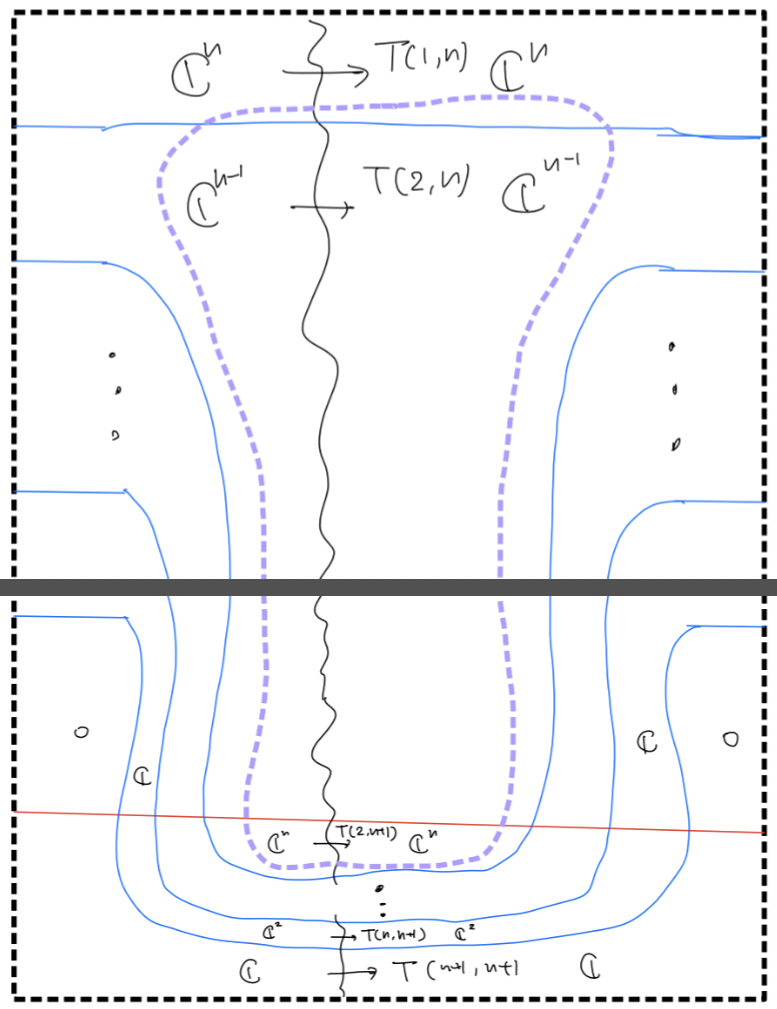 ℂⁿ → T(1,n) ℂⁿ
ℂⁿ⁻¹ → T(2,n) ℂⁿ⁻¹
0 ℂ ℂ 0
ℂⁿ → T(2,n+1) ℂⁿ
ℂ² → T(n,n+1) ℂ²
ℂ → T(n+1,n+1) ℂ